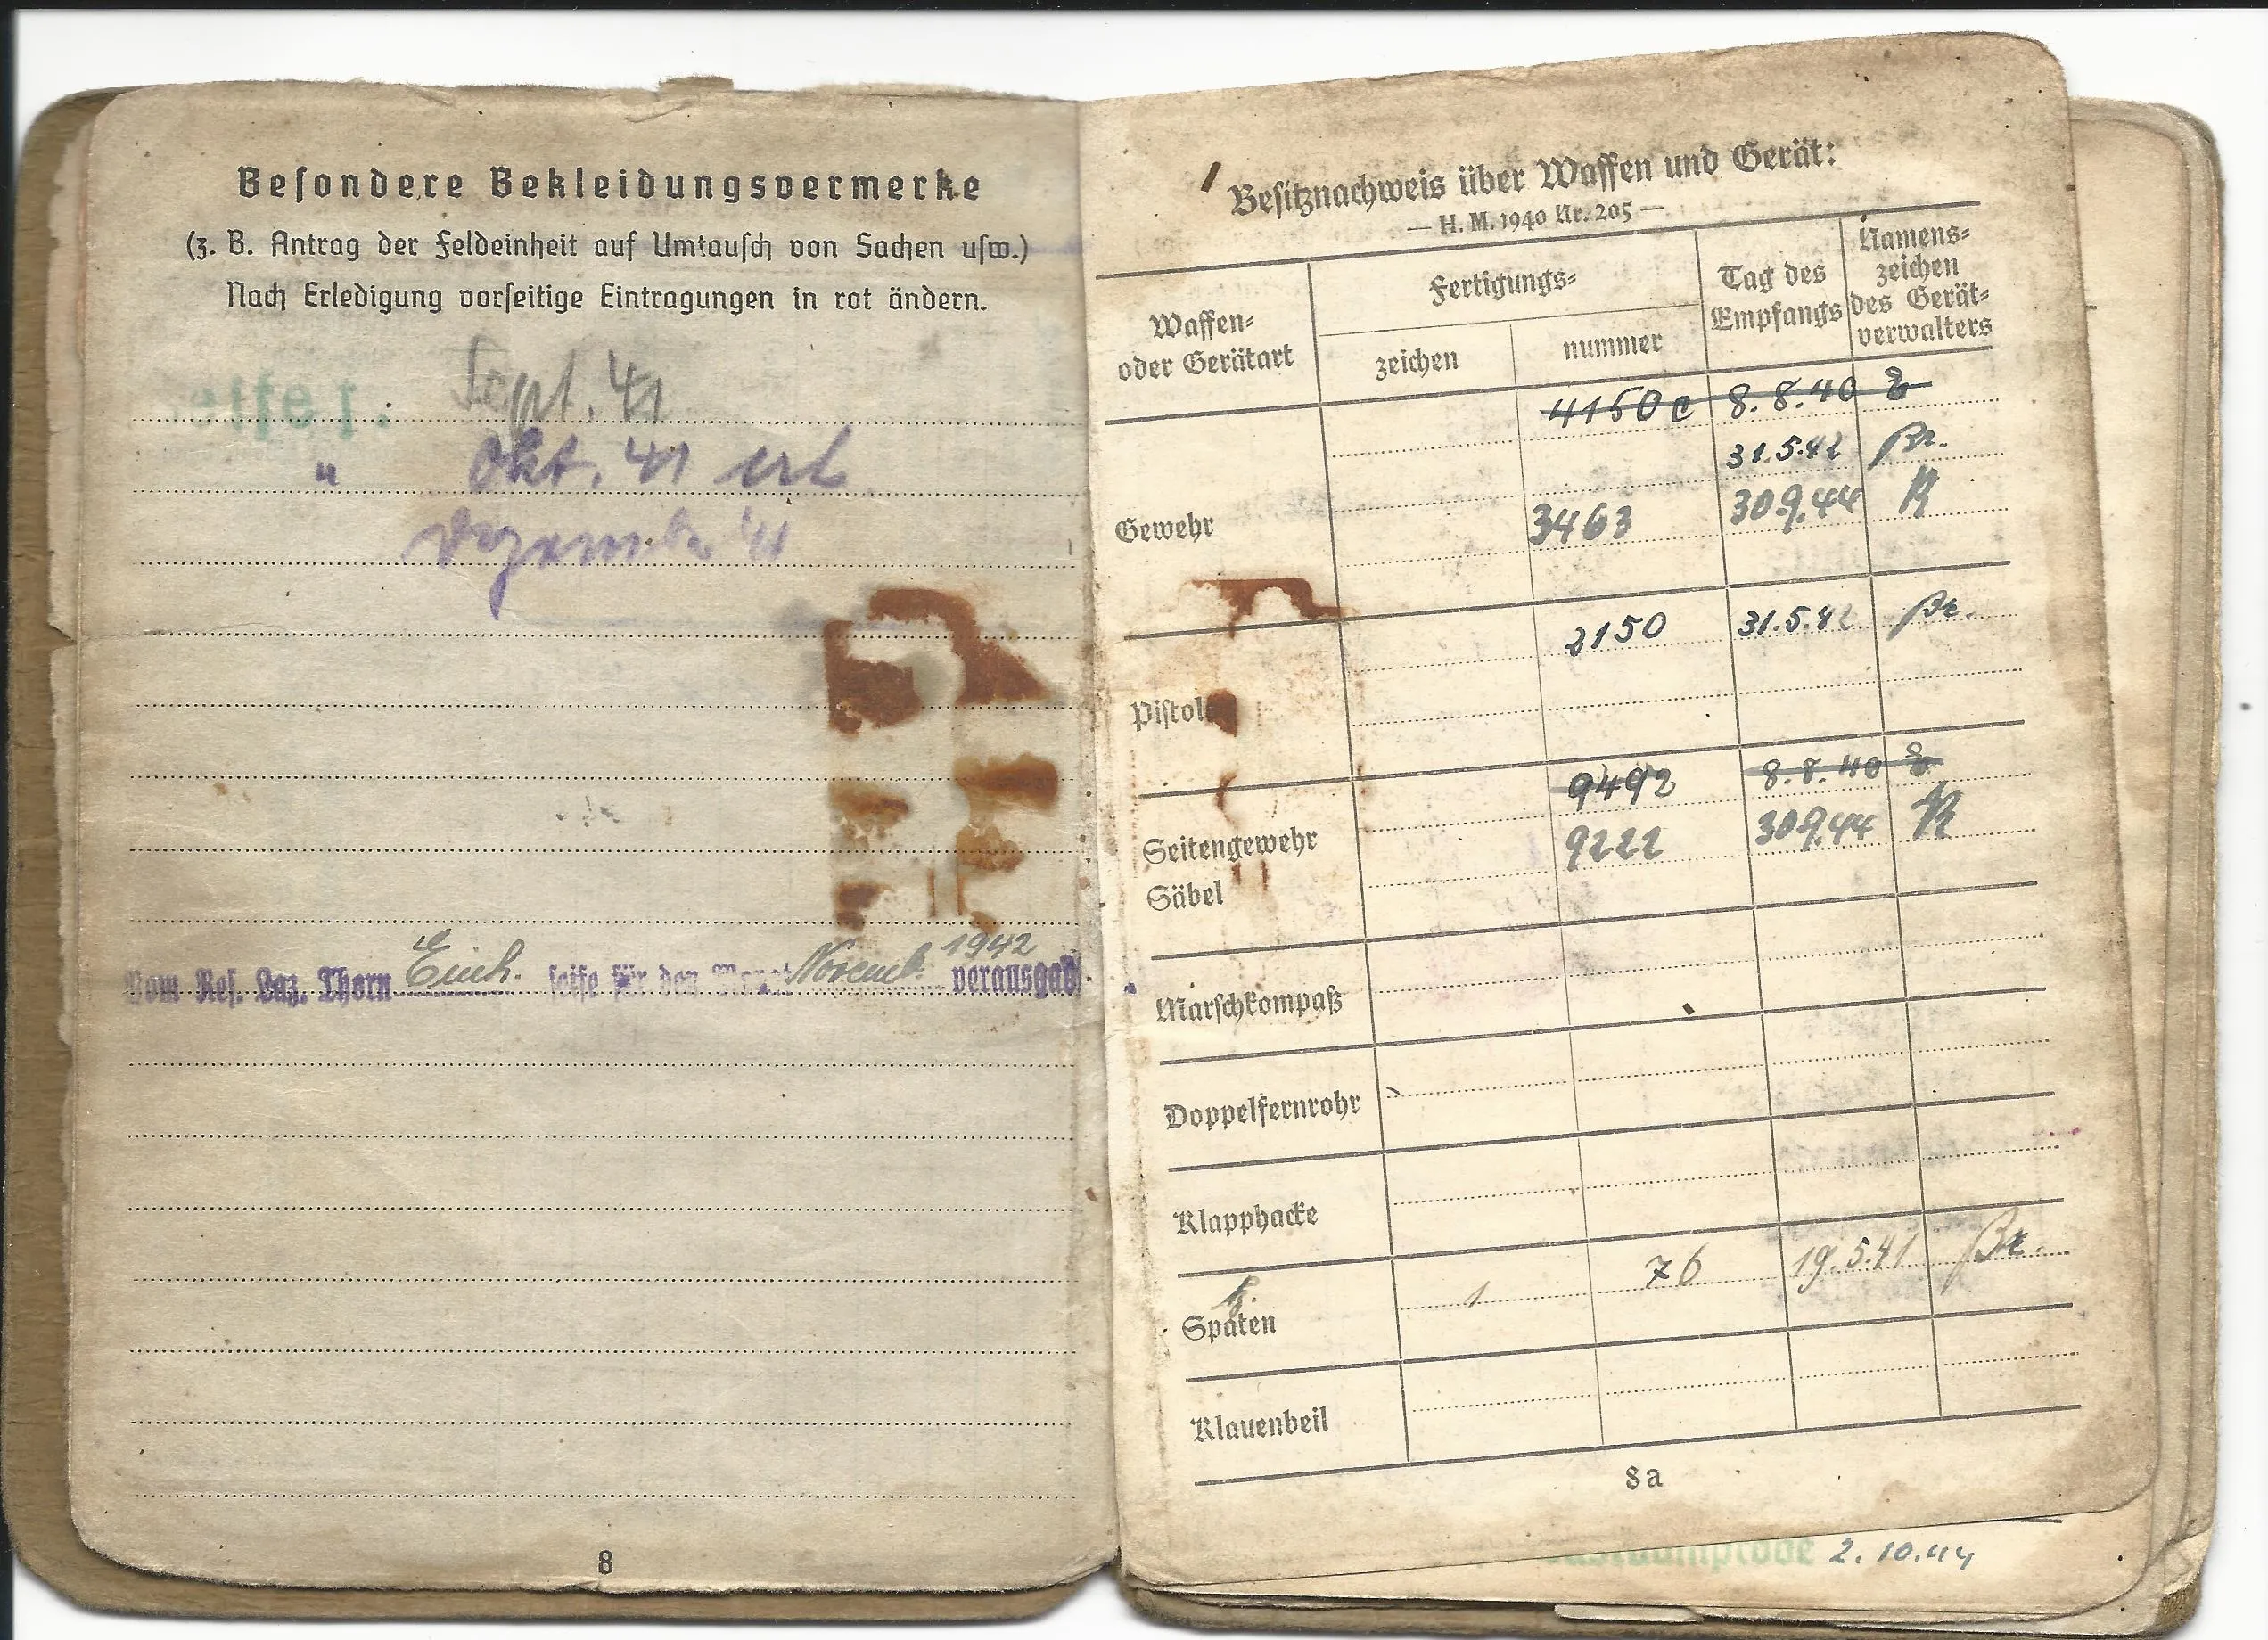 Besondere Bekleidungsvermerke
(z. B. Antrag der Feldeinheit auf Umtausch von Sachen usw.)
Nach Erledigung vorseitige Eintragungen in rot ändern.
Seife: Sept. 41
" Okt. 41 erh
Dezember 41
Vom Res. Laz. Thorn Einh. seife für den Monat Novemb. 1942 verausgabt
8
Besitznachweis über Waffen und Gerät:
— H. M. 1940 Nr. 205 —
Waffen- oder Gerätart
Fertigungs-
zeichen
nummer
Tag des Empfangs
Namens-zeichen des Gerät-verwalters
4150 c 8.8.40
31.5.42 Br.
Gewehr 3463 30.9.44 K
Pistole 2150 31.5.42 Br.
9492 8.8.40
Seitengewehr 9222 30.9.44 K
Säbel
Marschkompaß
Doppelfernrohr
Klapphacke
Spaten 1 76 19.5.41 Br.
Klauenbeil
8a
2.10.44